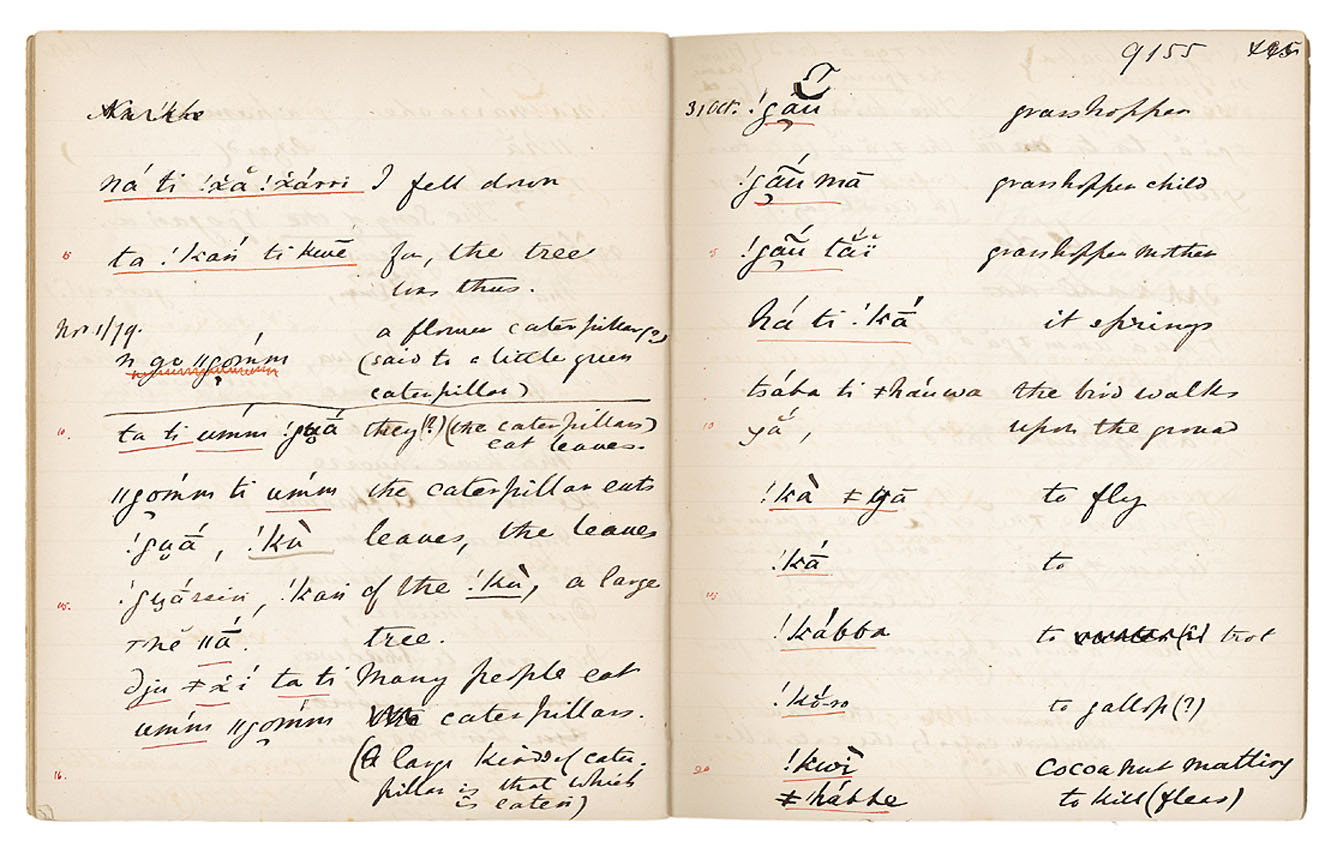 ná ti !x̌ắ !x̌árri I fell down
5 ta !kań ti kwē̌ for, the tree
was thus.
Nov 1/79. a flower caterpillar(?)
n go ǁgoḿm (said to a little green
caterpillar)
10. ta ti uḿm !gu̯ā́ they(?) (the caterpillars)
eat leaves.
ǁgoḿm ti uḿm the caterpillar eats
!gu̯ā́, !kù leaves, the leaves
15. !gu̯ássin, !kan of the !kù, a large
ǁā́. tree.
dju ǂx̌í ta ti Many people eat
uḿm ǁgoḿm caterpillars.
(A large kind of cater-
16. pillar is that which
is eaten)
9155
T
31 Oct. !gā̃u grasshopper
!gā̃́u mā grasshopper child
5 !gā̃́u tăı̈ grasshopper mother
há ti !kā́ it springs
tsába ti ǂháuwa the bird walks
10 yā̌́, upon the ground
!kà ǂgā to fly
!kā́ to
15
!kábba to trot
!kṓ-ro to gallop(?)
20 !kwı̀ cocoanut matting
ǂhábbe to kill (fleas)